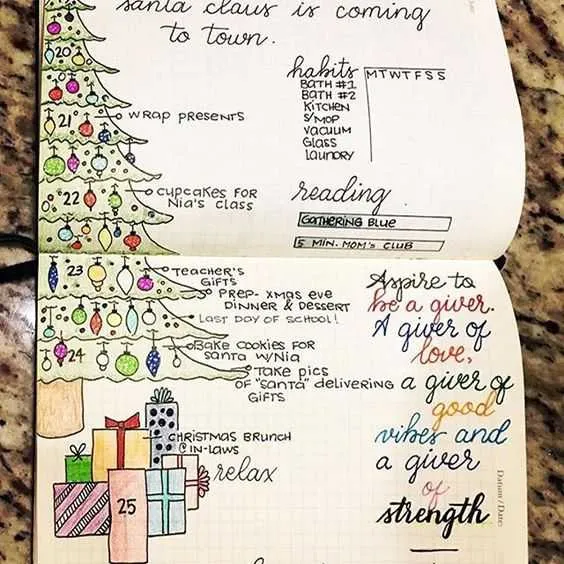 santa claus is coming
to town.
20
21
WRAP PRESENTS
22
CUPCAKES FOR
NIA'S CLASS
habits M T W T F S S
BATH #1
BATH #2
KITCHEN
S/MOP
VACUUM
GLASS
LAUNDRY
reading
GATHERING BLUE
5 MIN. MOM'S CLUB
23
TEACHER'S
GIFTS
PREP- XMAS EVE
DINNER & DESSERT
LAST DAY OF SCHOOL!
24
BAKE COOKIES FOR
SANTA W/NIA
TAKE PICS
OF "SANTA" DELIVERING
GIFTS
CHRISTMAS BRUNCH
@IN-LAWS
relax
25
Aspire to
be a giver.
A giver of
love,
a giver of
good
vibes and
a giver
of
strength
Datum / Date: